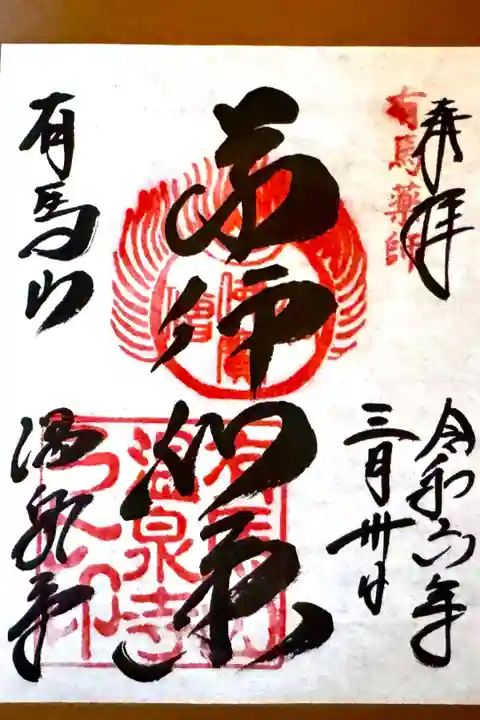 奉拝
有馬薬師
令和六年
三月卅日
薬師如来
有馬山
温泉寺